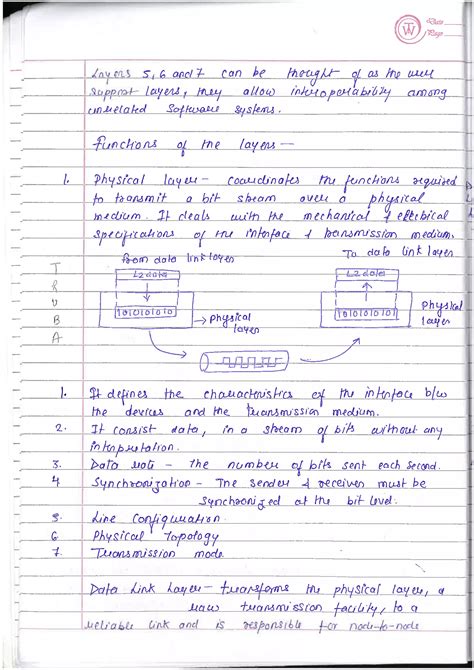 Date
Page
Layers 5, 6 and 7 can be thought of as the user
support layers, they allow interoperability among
unrelated Software systems.
Functions of the layers —
1. Physical layer - coordinates the functions required
to transmit a bit stream over a physical
medium. It deals with the mechanical & electrical
specifications of the interface & transmission medium.
from data link layer
To data link layer
L2 data
L2 data
10101010
10101010
→ Physical layer
Physical layer
T
R
U
B
A
1. It defines the characteristics of the interface b/w
the devices and the transmission medium.
2. It consist data, in a stream of bits without any
interpretation.
3. Data rate - the number of bits sent each second.
4 Synchronization - The sender & receiver must be
Synchronized at the bit level.
5. Line Configuration.
6 Physical Topology
7 Transmission mode
Data Link Layer - transforms the physical layer, a
raw transmission facility, to a
reliable link and is responsible for node-to-node